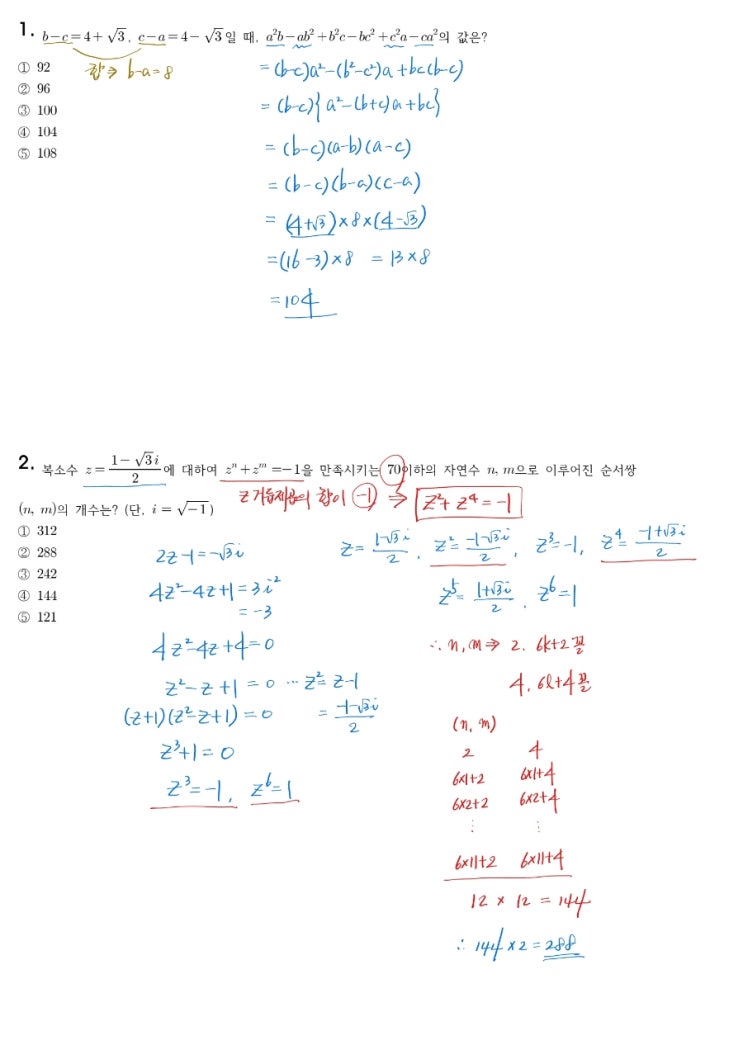 1. b−c=4+√3, c−a=4−√3일 때, a²b−ab²+b²c−bc²+c²a−ca²의 값은?
합⇒ b−a=8
① 92
② 96
③ 100
④ 104
⑤ 108
=(b−c)a²−(b²−c²)a+bc(b−c)
=(b−c){a²−(b+c)a+bc}
=(b−c)(a−b)(a−c)
=(b−c)(b−a)(c−a)
=(4+√3)×8×(4−√3)
=(16−3)×8 =13×8
=104
2. 복소수 z=(1−√3i)/2에 대하여 zⁿ+zᵐ=−1을 만족시키는 70이하의 자연수 n, m으로 이루어진 순서쌍
(n, m)의 개수는? (단, i=√−1)
z 거듭제곱의 합이 −1 ⇒ z²+z⁴=−1
① 312
② 288
③ 242
④ 144
⑤ 121
2z−1=−√3i
4z²−4z+1=3i²
=−3
4z²−4z+4=0
z²−z+1=0 ⋯ z²=z−1
=(−1−√3i)/2
(z+1)(z²−z+1)=0
z³+1=0
z³=−1, z⁶=1
z=(1−√3i)/2, z²=(−1−√3i)/2, z³=−1, z⁴=(−1+√3i)/2
z⁵=(1+√3i)/2, z⁶=1
∴ n,m⇒ 2. 6k+2꼴
4. 6l+4꼴
(n, m)
2 4
6×1+2 6×1+4
6×2+2 6×2+4
⋮ ⋮
6×11+2 6×11+4
12 × 12 = 144
∴ 144×2=288